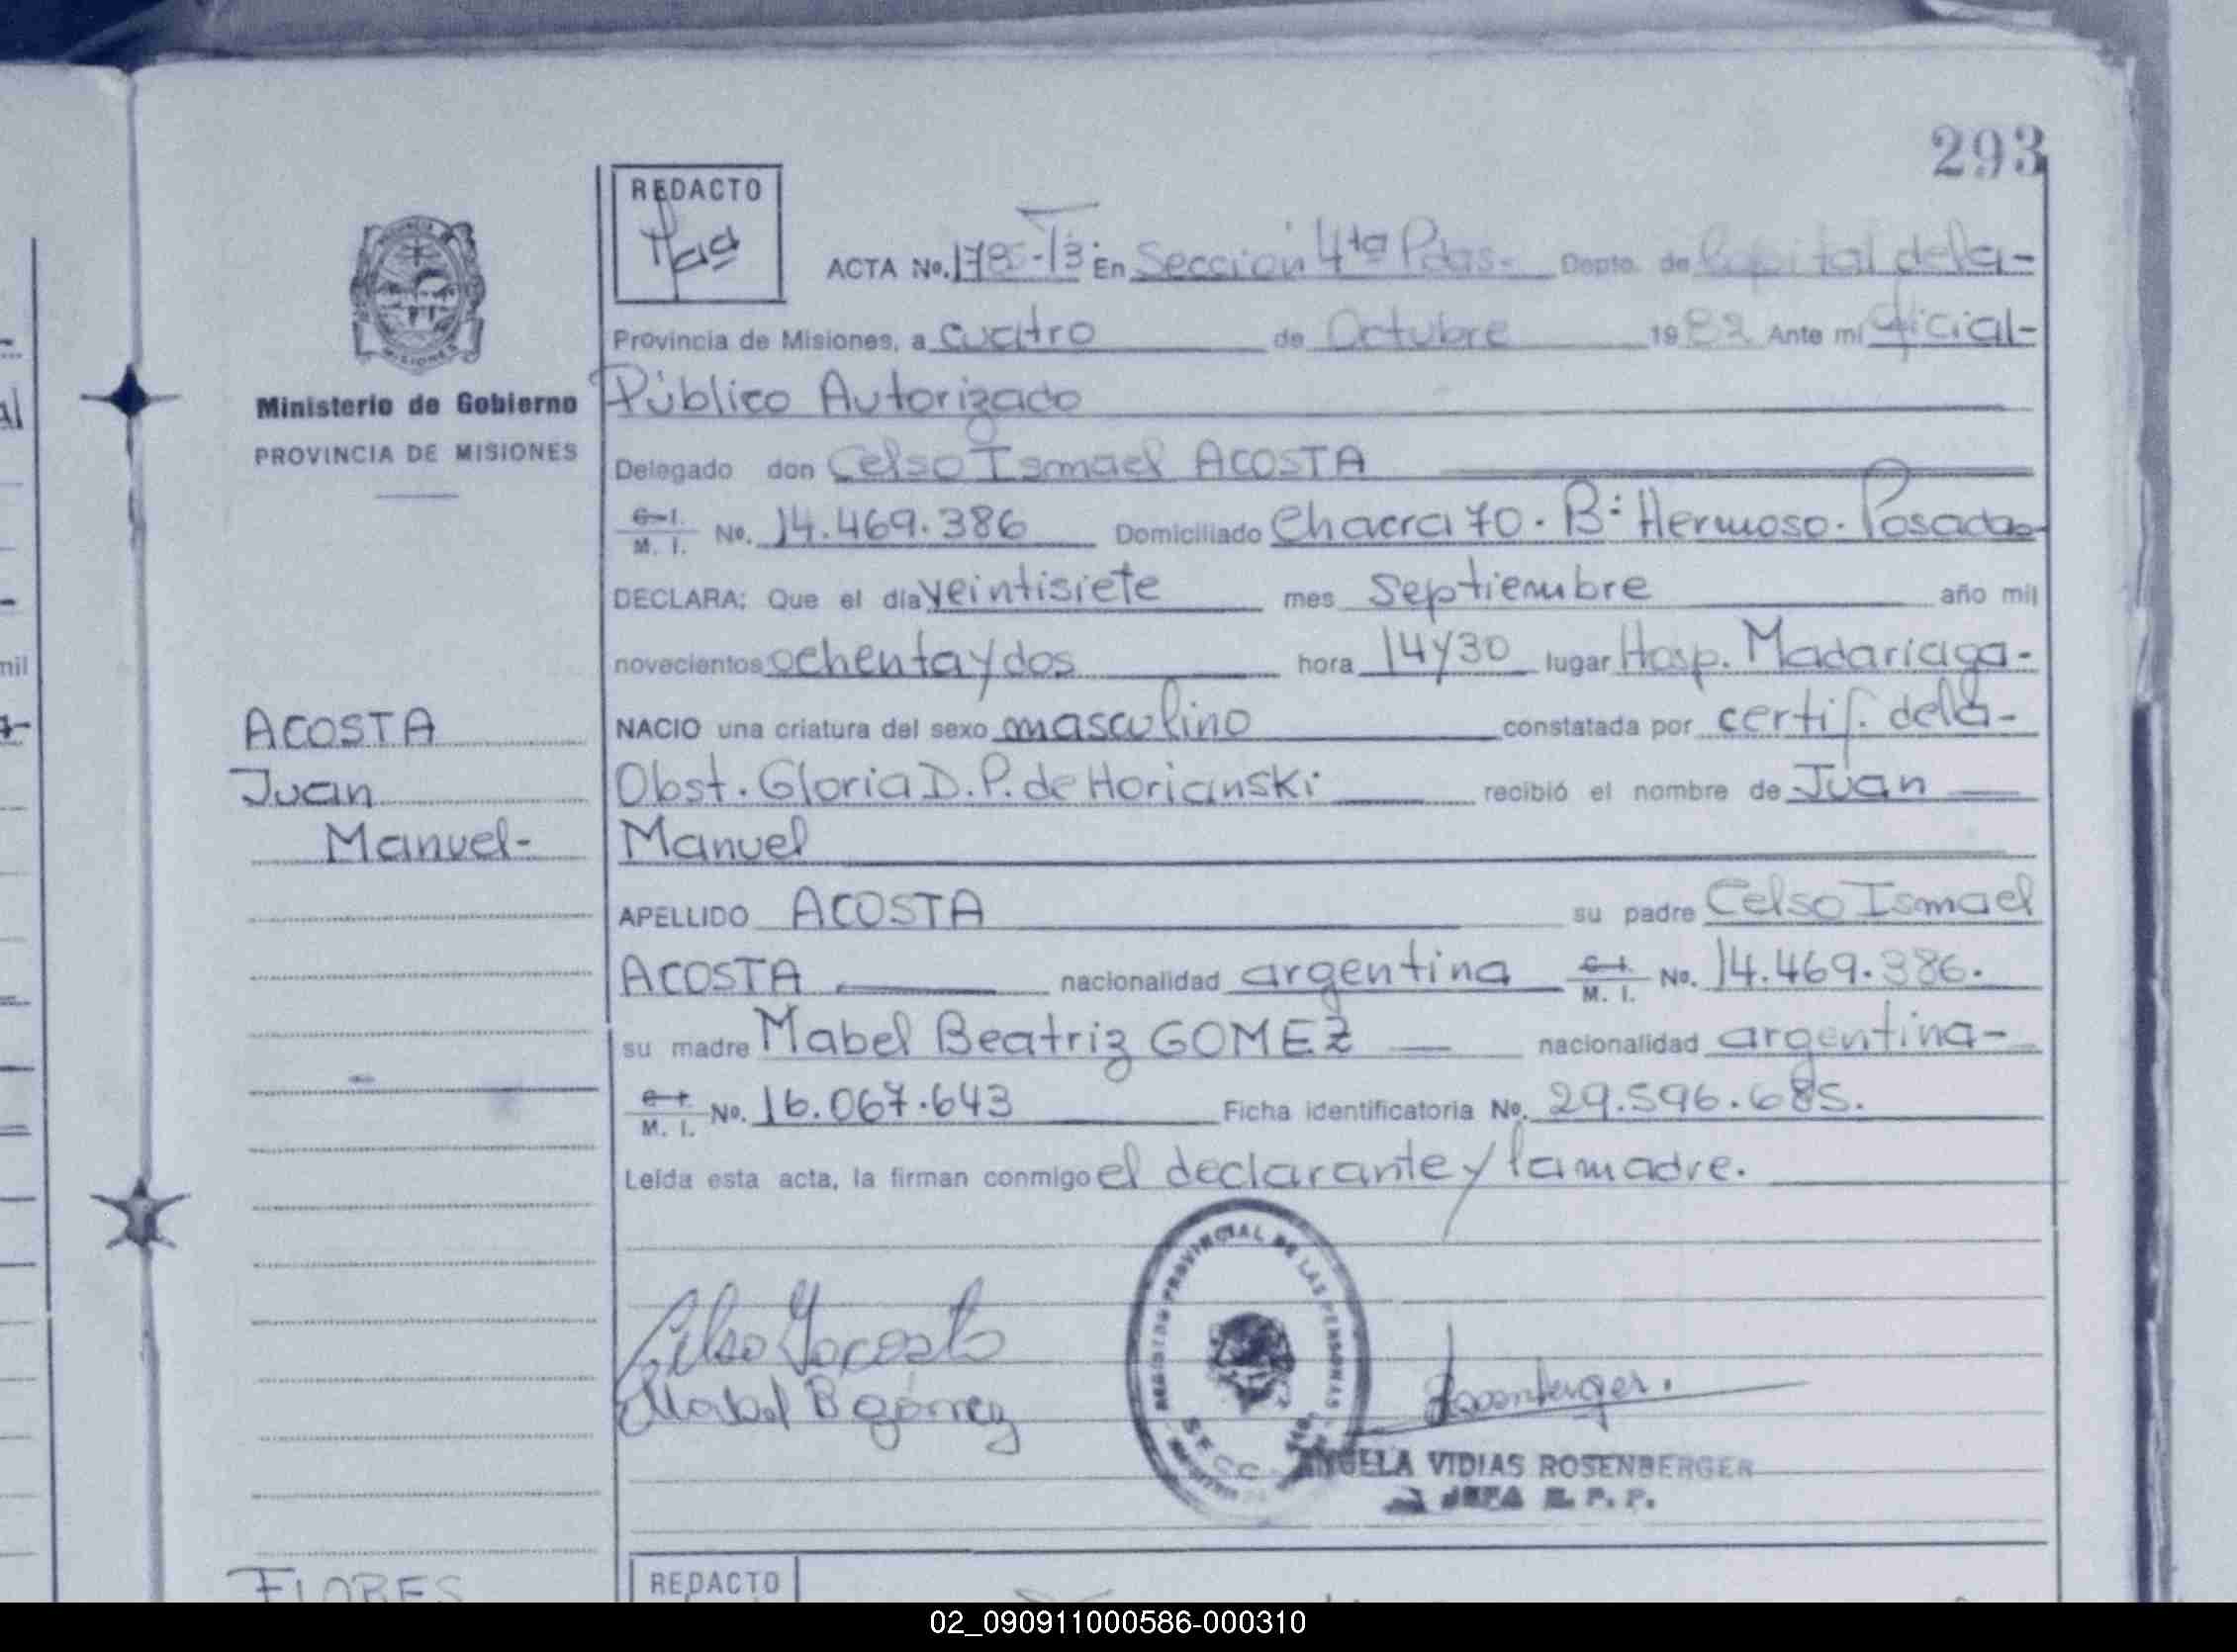 293
REDACTO
ACTA No. 1785-T3 En Sección 4ta Pdas.- Depto. de Capital de la-
Provincia de Misiones, a cuatro de Octubre 1982 Ante mí Oficial-
Ministerio de Gobierno
Público Autorizado
PROVINCIA DE MISIONES
Delegado don Celso Ismael ACOSTA
C. I. M. I. No. 14.469.386 Domiciliado Chacra 70. Bº Hermoso. Posadas
DECLARA: Que el día veintisiete mes septiembre año mil
novecientos ochenta y dos hora 14 y 30 lugar Hosp. Madariaga-
ACOSTA
NACIO una criatura del sexo masculino constatada por certif. de la-
Juan
Obst. Gloria D. P. de Horianski recibió el nombre de Juan
Manuel-
Manuel
APELLIDO ACOSTA su padre Celso Ismael
ACOSTA nacionalidad argentina C. I. M. I. No. 14.469.386.
su madre Mabel Beatriz GOMEZ nacionalidad argentina-
C. I. M. I. No. 16.067.643 Ficha identificatoria No. 29.596.685.
Leída esta acta, la firman conmigo el declarante y la madre.
REGISTRO PROVINCIAL DE LAS PERSONAS
Celso I Acosta
Mabel B Gómez
Rosenberger.
ANGELA VIDIAS ROSENBERGER
JEFA R. P. P.
FLORES
REDACTO
02_090911000586-000310